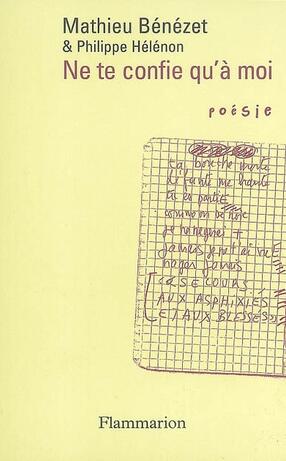 Mathieu Bénézet
& Philippe Hélénon
Ne te confie qu'à moi
poésie
ta bouche morte
me hante
tu es partie
comme on se noie
je
jamais je ne t'ai vue
nager jamais
(SECOURS
AUX ASPHYXIES
ET AUX BLESSES)
Flammarion